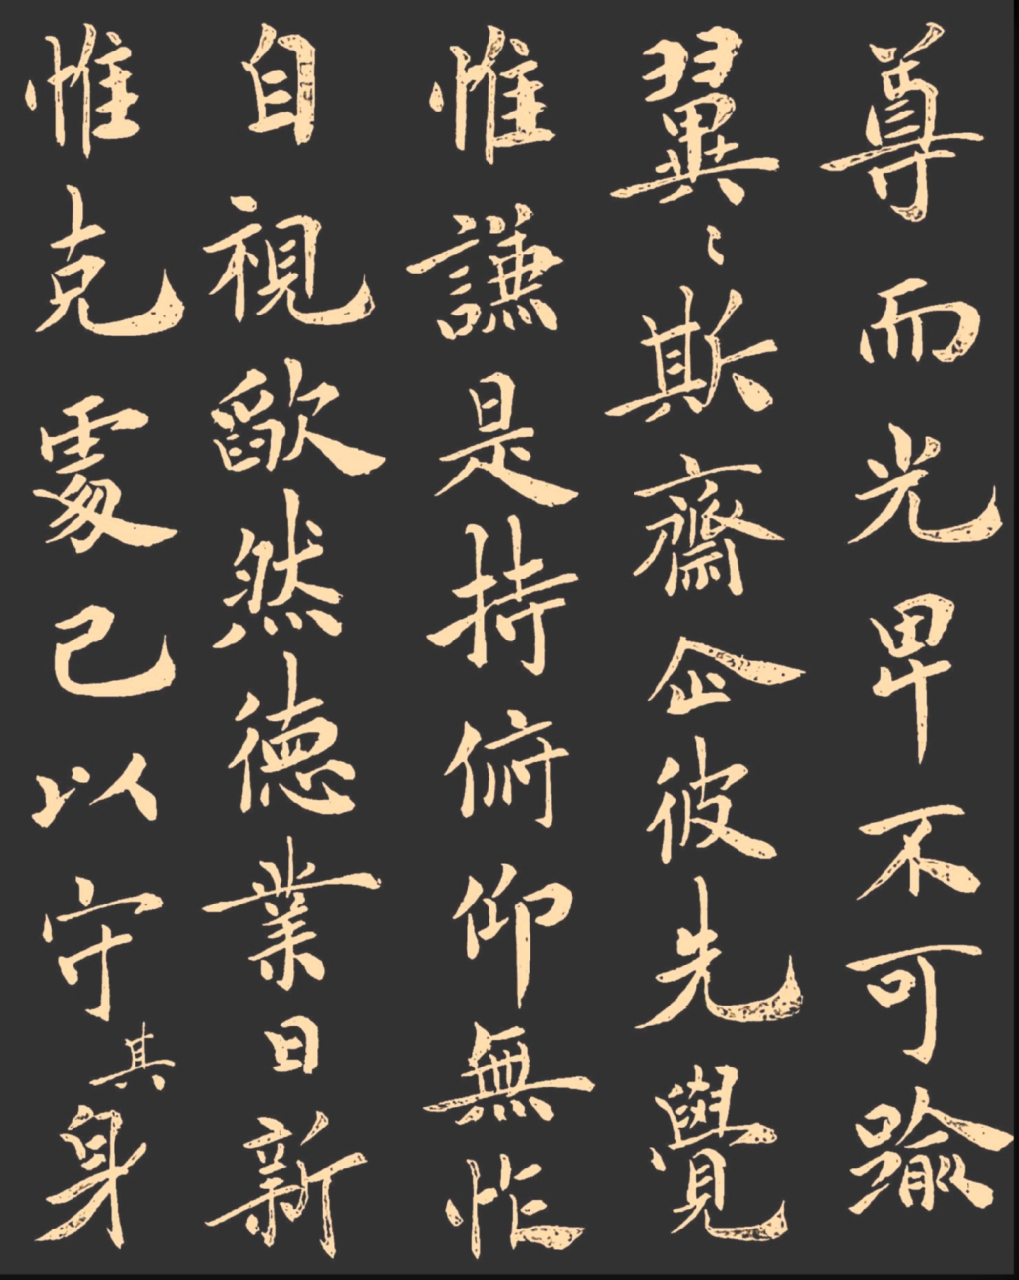 尊而光卑不可踰
翼〻斯齋企彼先覺
惟謙是持俯仰無怍
自視歉然德業日新
惟克處己以守其身